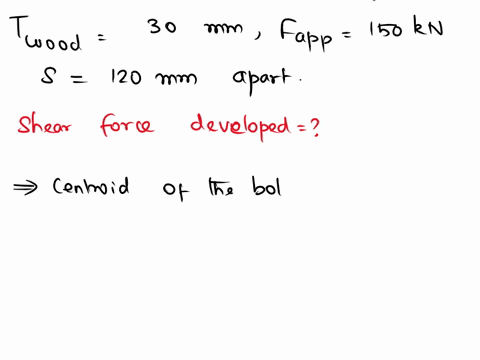 Twood = 30 mm, Fapp = 150 kN
S = 120 mm apart.
Shear force developed = ?
⇒ Centroid of the bol